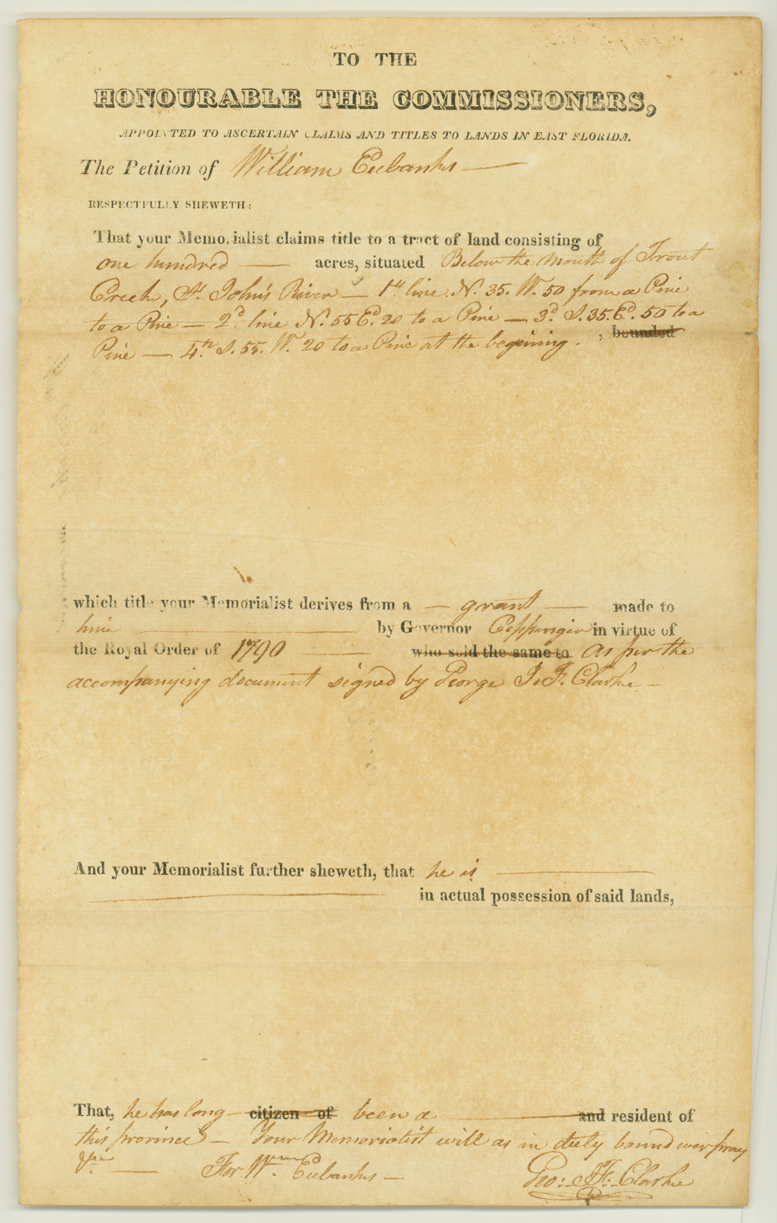 TO THE
HONOURABLE THE COMMISSIONERS,
APPOINTED TO ASCERTAIN CLAIMS AND TITLES TO LANDS IN EAST FLORIDA.
The Petition of William Eubanks —
RESPECTFULLY SHEWETH:
That your Memorialist claims title to a tract of land consisting of
one hundred — acres, situated Below the mouth of Trout
Creek, St. John's River — 1st line N. 35. W. 50 from a Pine
to a Pine — 2d line N. 55 Ed. 20 to a Pine — 3d. S. 35. Ed. 50 to a
Pine — 4th S. 55. W. 20 to a Pine at the begining. , bounded
which title your Memorialist derives from a — grant — made to
him — by Governor Coppinger in virtue of
the Royal Order of 1790 — who sold the same to as per the
accompanying document signed by George J. F. Clarke —
And your Memorialist further sheweth, that he is —
— in actual possession of said lands,
That, he has long — citizen of been a — and resident of
this province — Your Memorialist will as in duty bound ever pray
&c. — For Wm. Eubanks —
Geo: J. F. Clarke